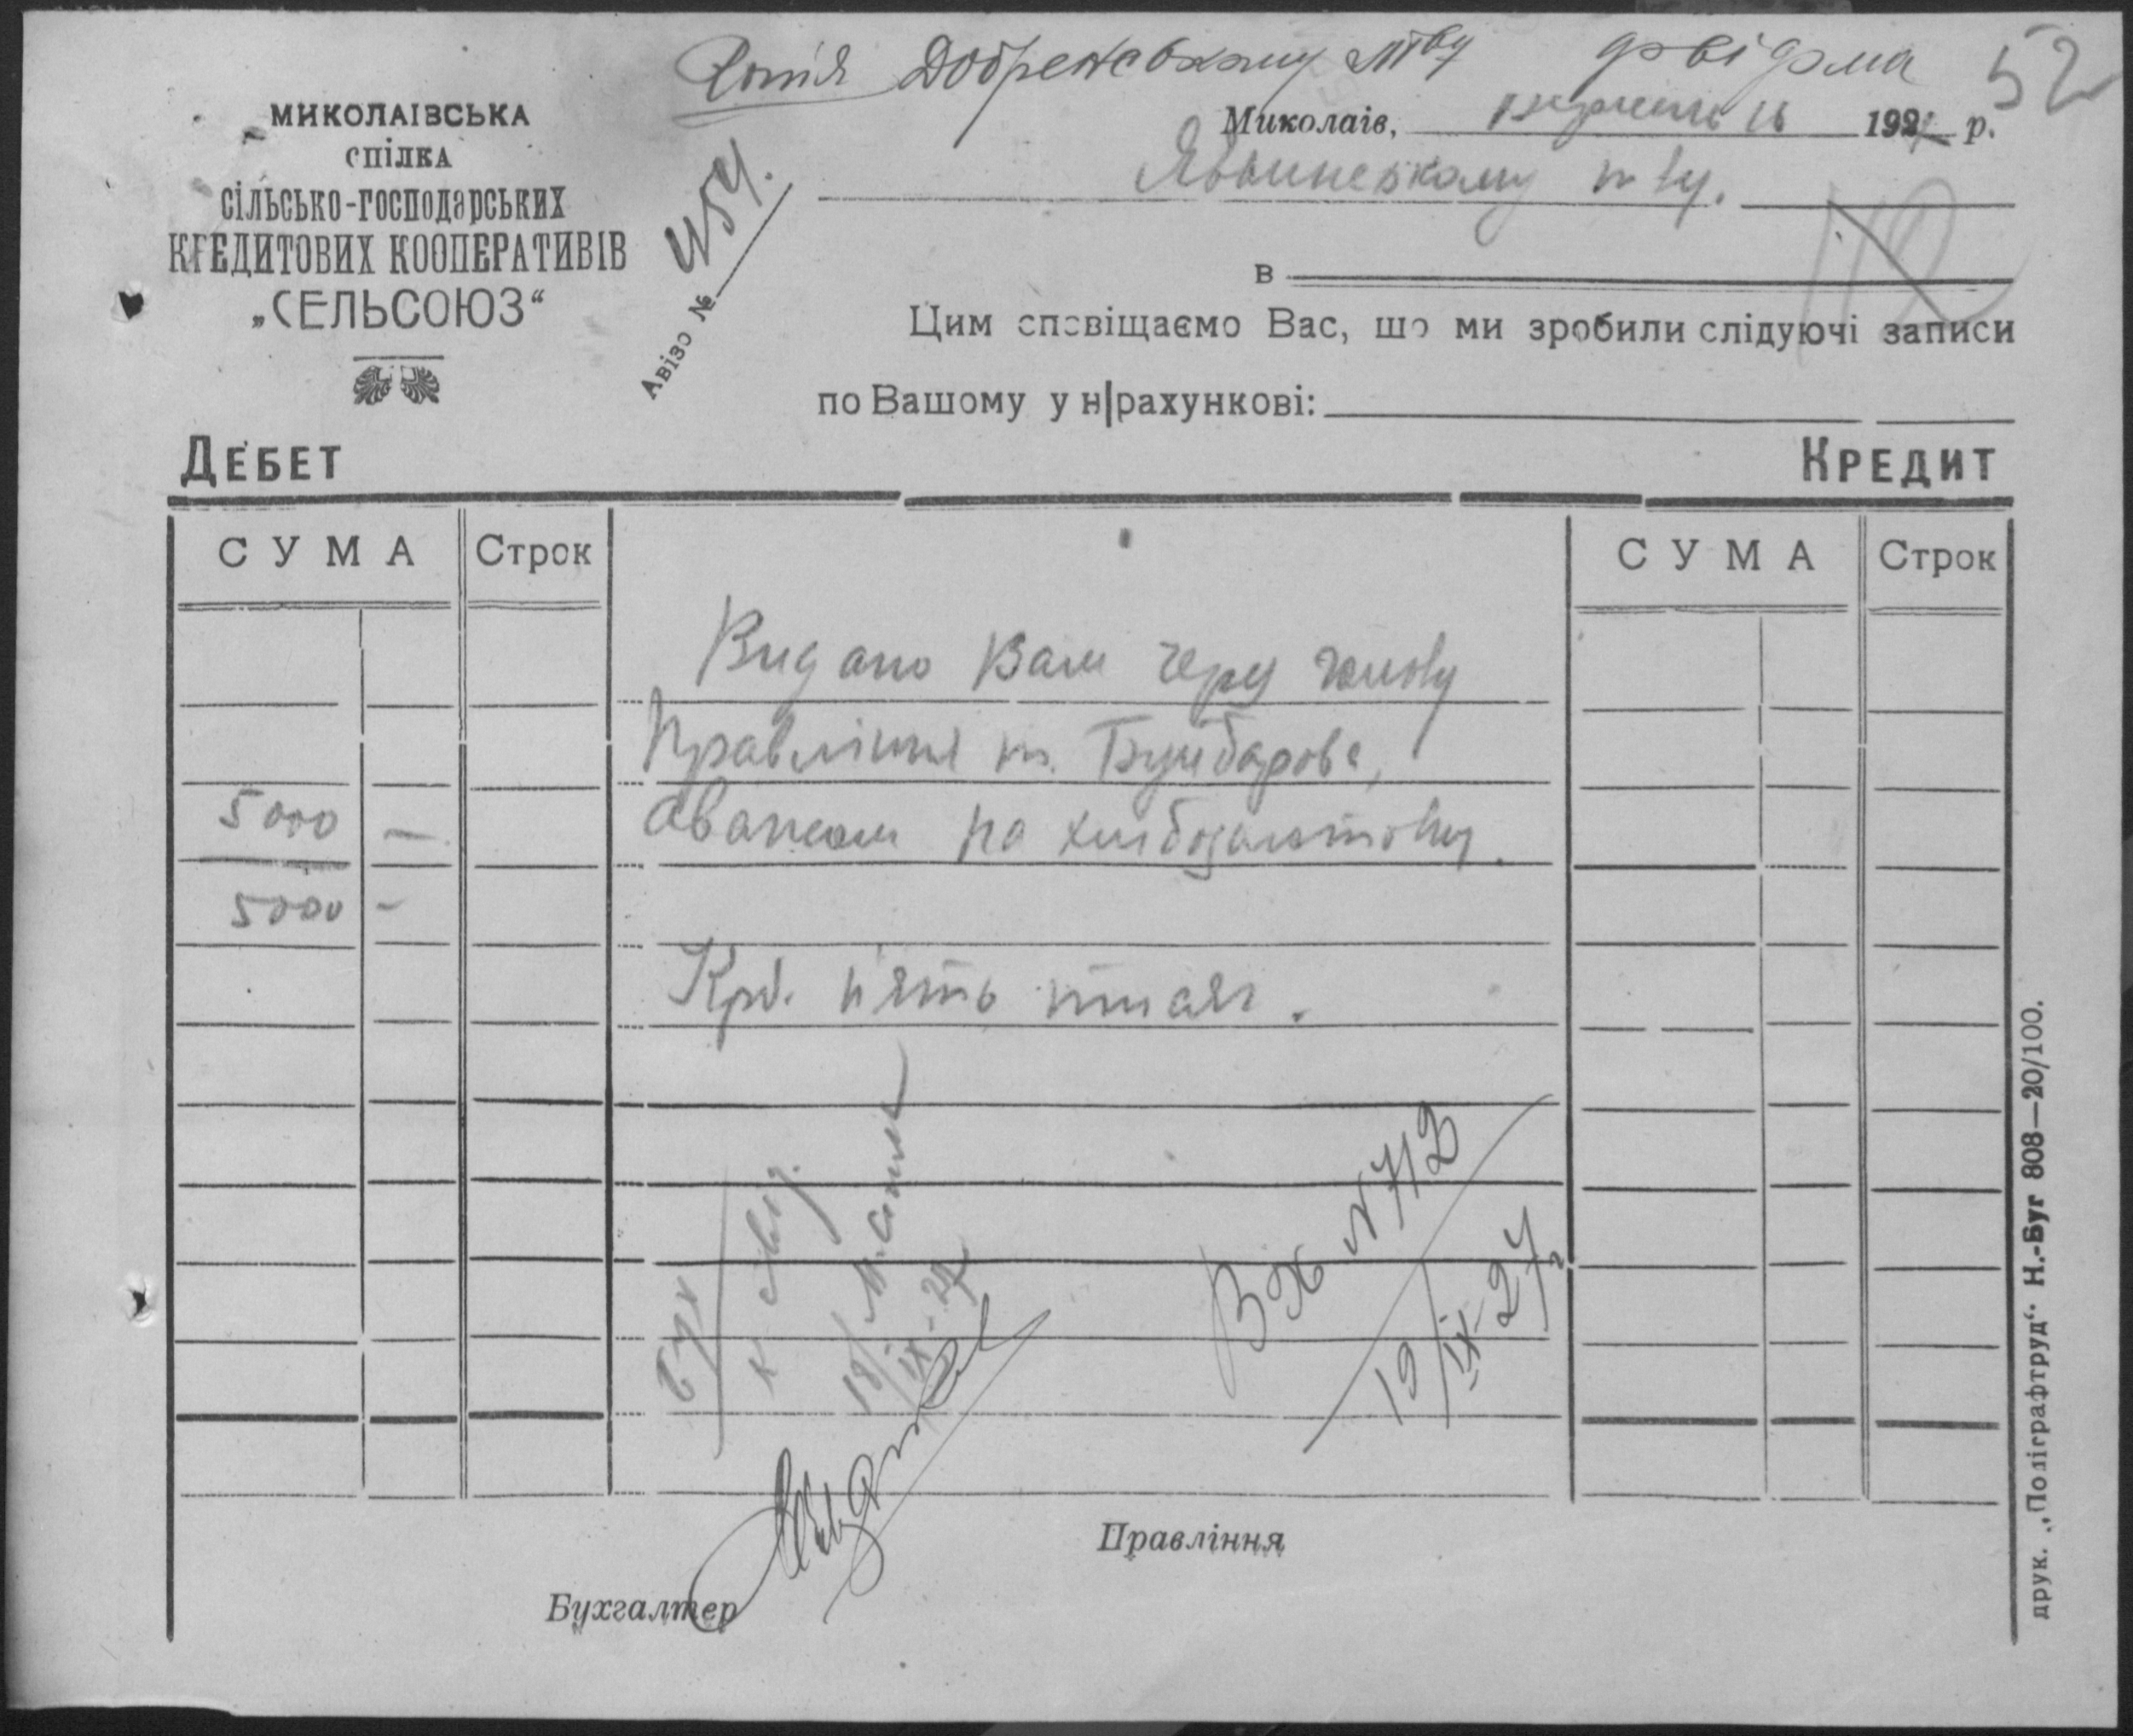 Копія Добренському Т-ву до відома
52
МИКОЛАЇВСЬКА
СПІЛКА
СІЛЬСЬКО-ГОСПОДАРСЬКИХ
КРЕДИТОВИХ КООПЕРАТИВІВ
„СЕЛЬСОЮЗ“
Авізо №
Миколаїв, 16 192 р.
Явкинському т-ву.
112
в
Цим сповіщаємо Вас, що ми зробили слідуючі записи
по Вашому у н|рахункові:
ДЕБЕТ КРЕДИТ
СУМА Строк СУМА Строк
Видано Вам через голову
Правління т.
5000 — авансом на хлібозаготовку.
5000 —
Крб. п'ять тисяч.
Вх N 712
19/IX-27
18/IX-27
Правління
Бухгалтер
друк. „Поліграфтруд“ Н.-Буг 808—20/100.